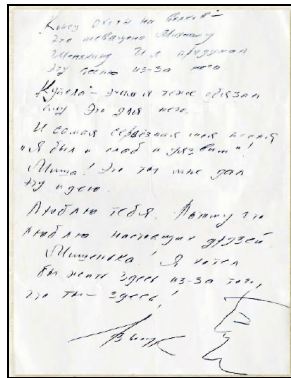 Конец охоты на волков" –
это посвящено Михаилу
Шемякину И я придумал
эту песню из-за него
Купола – этим я тоже обязан
ему Это для него.
И самая серьёзная моя песня
"Я был и слаб и уязвим"!
Миша! Это ты мне дал
эту идею.
Люблю тебя. Потому что
люблю настоящих друзей.
Мишенька! Я хотел
бы жить здесь из-за того,
что ты – здесь!